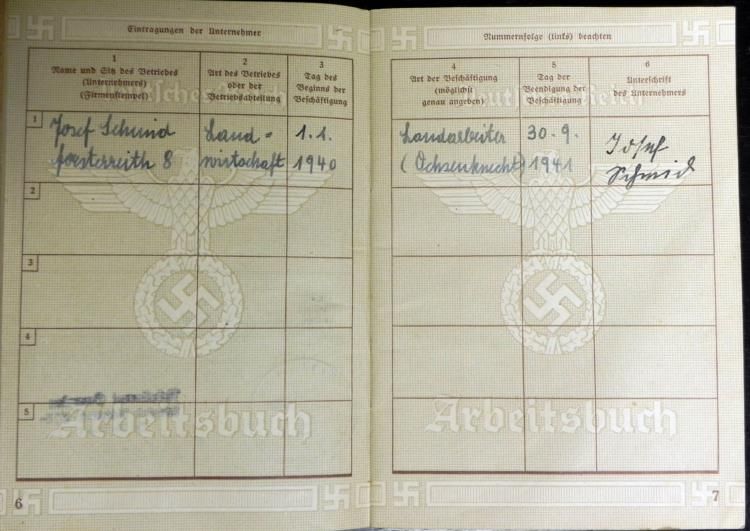 Eintragungen der Unternehmer
1
Name und Sitz des Betriebes
(Unternehmers)
(Firmenstempel)
2
Art des Betriebes
oder der
Betriebsabteilung
3
Tag des
Beginns der
Beschäftigung
1
Josef Schmid
Forsterreith 8
Land=
wirtschaft
1.1.
1940
2
3
4
5
Deutsches Reich
Arbeitsbuch
6
Nummernfolge (links) beachten
4
Art der Beschäftigung
(möglichst
genau angeben)
5
Tag der
Beendigung der
Beschäftigung
6
Unterschrift
des Unternehmers
Landarbeiter
(Ochsenknecht)
30.9.
1941
Josef
Schmid
Deutsches Reich
Arbeitsbuch
7